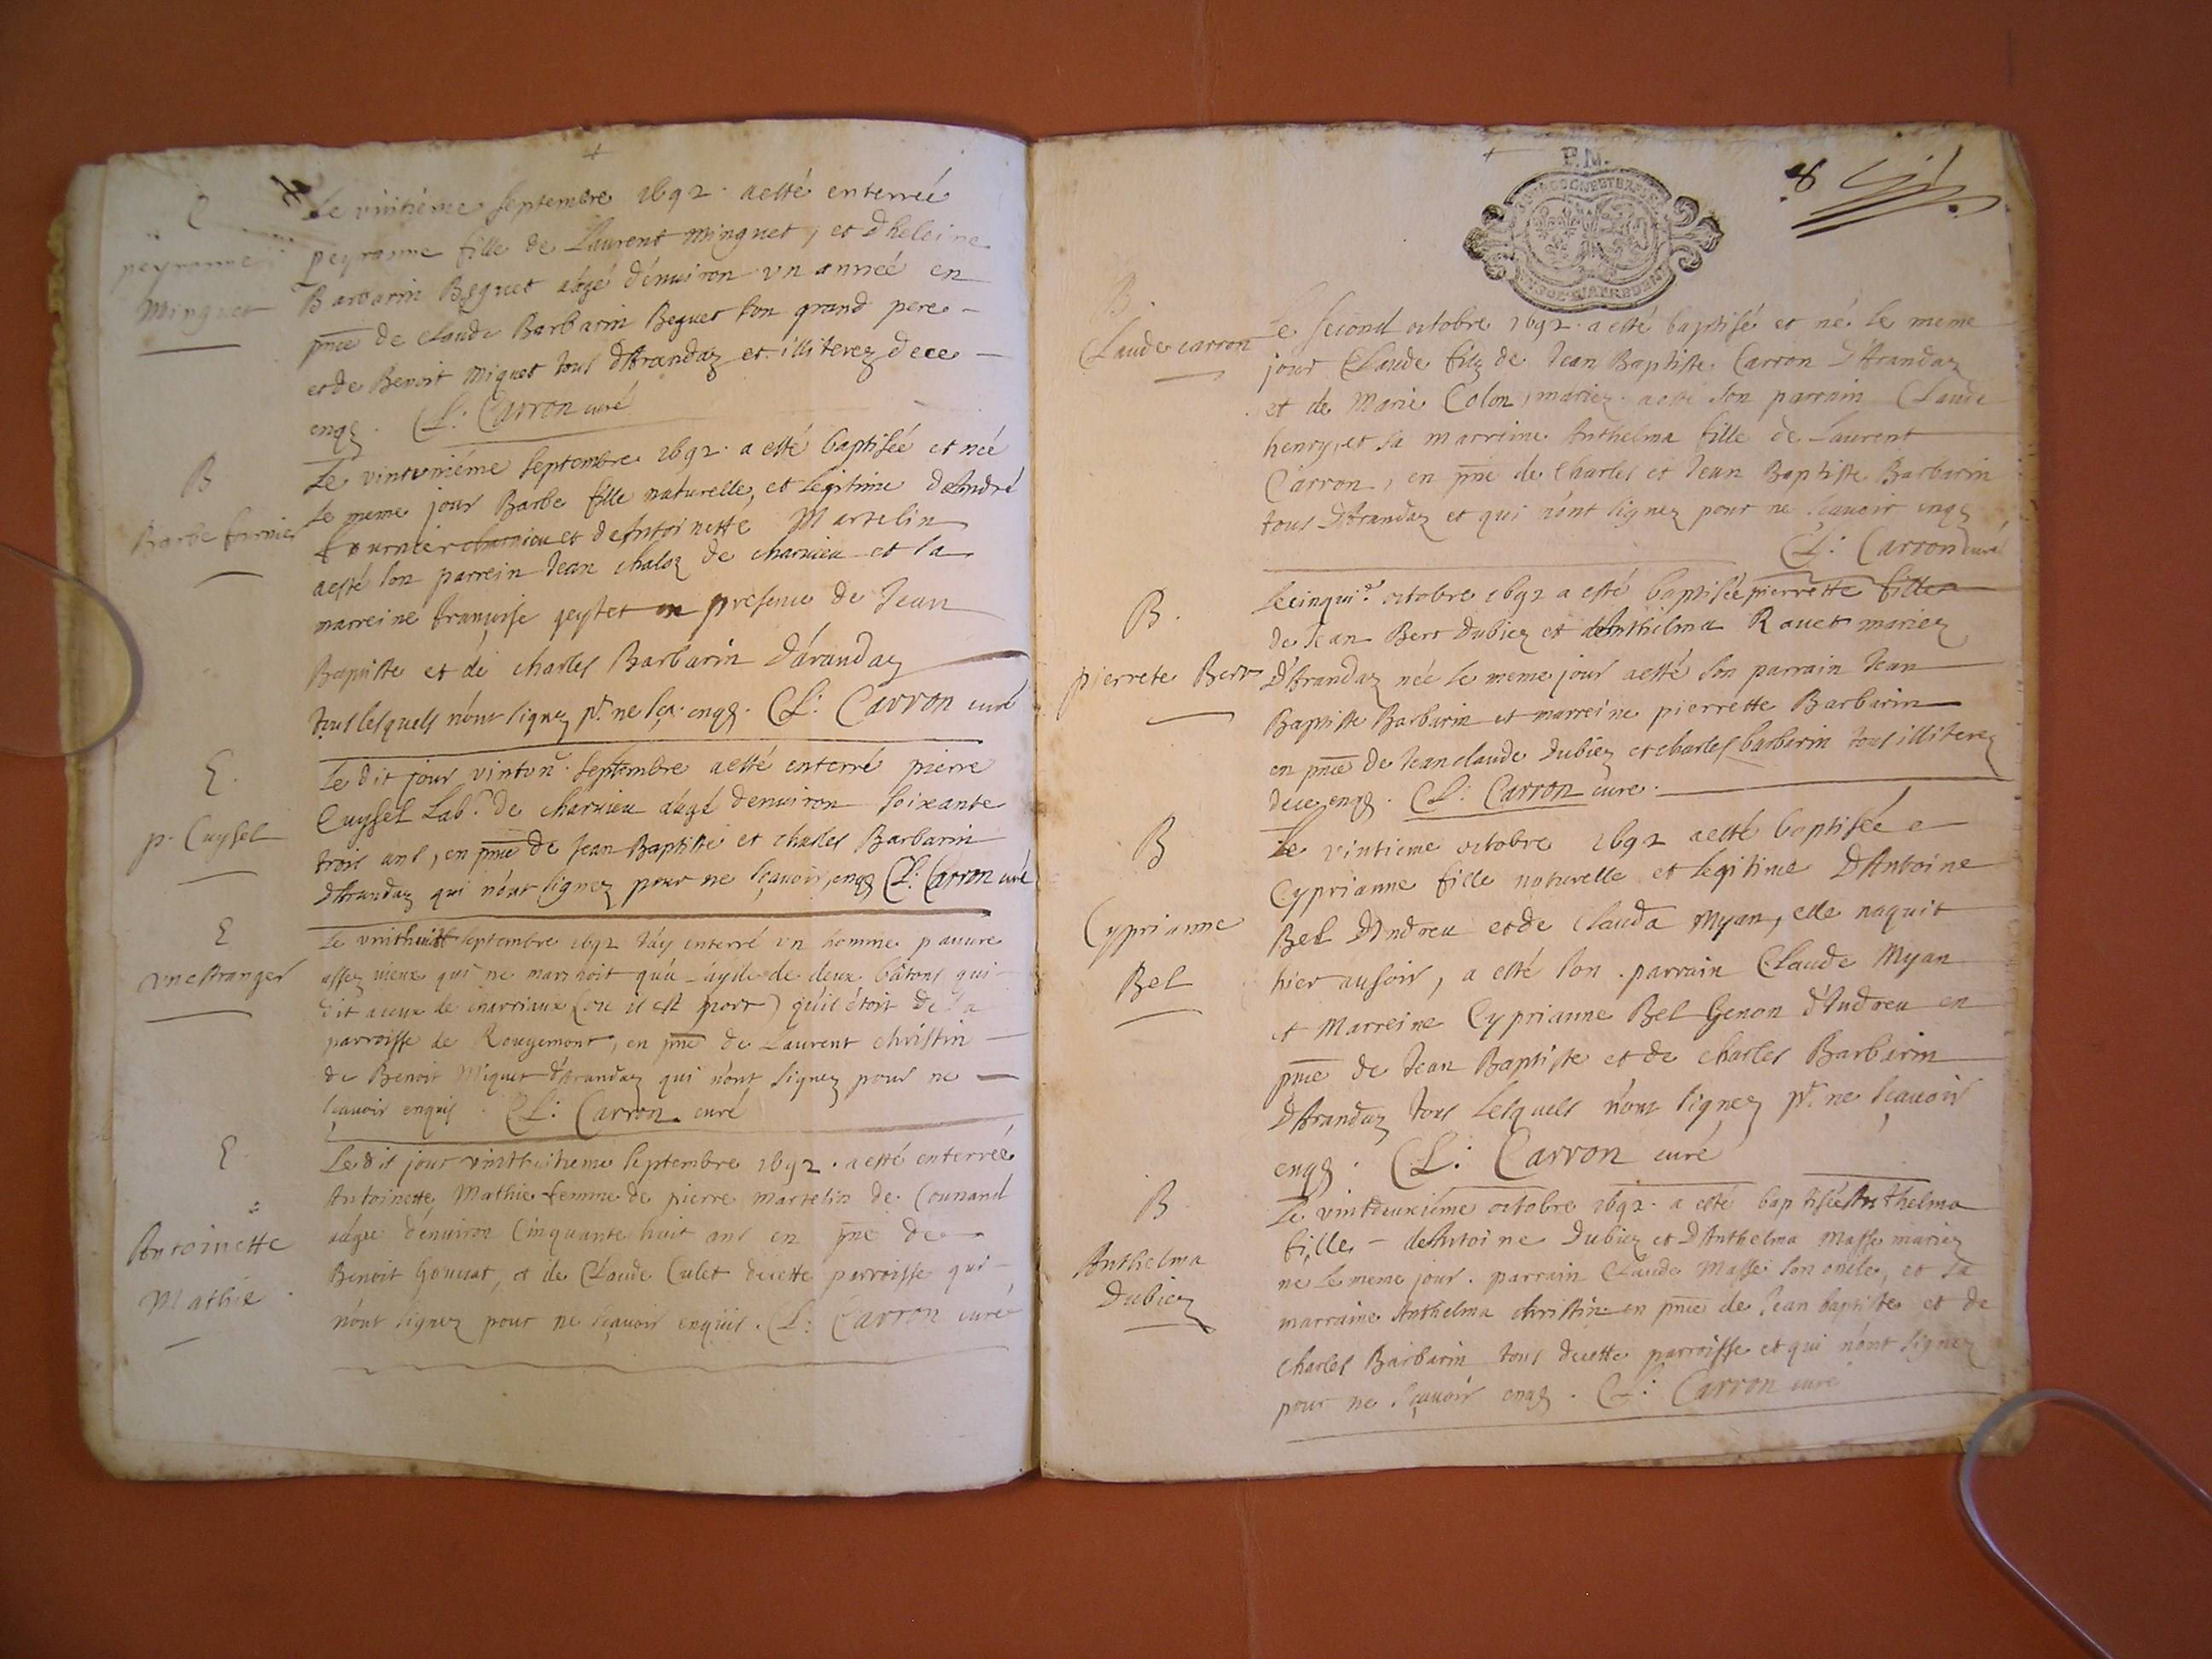 E
peyranne
Minguet
Le vintiéme septembre 1692 · a esté enterreé
peyranne fille de Laurent Minguet, et d'heleine
Barbarin Beguet aâgé d'énuiron vn anneé en
pnce de Claude Barbarin Beguet son grand pere -
et de Benoit Miquet tous d'Arandaz et illiterez de ce -
enqs · Cl: Carron curé
B
Barbe furnier
Le vintvniéme septembre 1692 · a esté baptiseé et neé
le meme jour Barbe fille naturelle, et legitime de André
fournier charuieu et de Antoinette Martelin
a esté son parrein Jean chaloz de charuieu et sa
marreine françoise geytet en presence de Jean
Baptiste et de charles Barbarin d'árandaz
tous lesquels n'ont signez pr. ne sça· enqs · Cl: Carron curé
E.
p. Cuysel
Le dit jour vintvn. septembre a esté enterré pierre
Cuysel Lab. de charuieu aâgé denuiron soixante
trois ans, en pnce de Jean Baptiste et charles Barbarin
d'Arandaz qui n'ont signez pour ne sçauoir, enqs Cl: Carron curé
E
vn estranger
Le vinthuit septembre 1692 J'ay enterré vn homme pauure
assez vieux qui ne marchoit qu'a l'ayde de deux bâtons qui
dit a ceux de charriaux (ou il est mort) qu'il étoit de la
parroisse de Rougemont, en pnce de Laurent christin -
de Benoit Miquet d'Arandaz qui n'ont signez pour ne
sçauoir enquis · Cl: Carron curé
E.
Antoinette
Mathie.
Le dit jour vinthuitieme septembre 1692 · a esté enterreé
Antoinette Mathie femme de pierre martelin de Counand
aâgeé d'énuiron Cinquante huit ans en pnce de
Benoit Gouuat, et de Claude Culet de cette parroisse qui -
n'ont signez pour ne sçauoir enquis. Cl: Carron curé
P.M.
8
B.
Claude carron
Le second octobre 1692 · a esté baptisé et né le meme
jour Claude filz de Jean Baptiste Carron d'Arandaz
et de Marie Colon, mariez a esté son parrain Claude
henry, et sa marreine Anthelma fille de Laurent
Carron, en pnce de Charles et Jean Baptiste Barbarin
tous d'Arandaz et qui n'ont signez pour ne sçauoir enqs
Cl: Carron curé
B.
pierrete Bert
Le cinqui.e octobre 1692 a esté baptiseé pierrette fille
de Jean Bert dubiez et de Anthelma Rauet mariez
d'Arandaz neé le meme jour a esté son parrain Jean
Baptiste Barbarin et marreine pierrette Barbarin
en pnce de Jean claude dubiez et charles barbarin tous illiterez
de ce, enqs · Cl: Carron curé.
B
Cyprianne
Bel
Le vintieme octobre 1692 a esté baptiseé
Cyprianne fille naturelle et legitime d'Antoine
Bel d'Indreu et de Clauda Myan, elle naquit
hier au soir, a esté son parrain Claude Myan
et Marreine Cyprianne Bel Genon d'Indreu en
pnce de Jean Baptiste et de charles Barbarin
d'Arandaz tous lesquels n'ont signez pr. ne sçauoir
enqs · Cl: Carron curé
B
Anthelma
Dubiez
Le vintdeuxiéme octobre 1692 · a esté baptiseé Anthelma
fille - de Antoine Dubiez et d'Anthelma Masse mariez
ne le meme jour. parrain Claude Masse son oncle, et sa
marraine Anthelma christin en pnce de Jean baptiste et de
charles Barbarin tous de cette parroisse et qui n'ont signez
pour ne sçauoir enqs · Cl: Carron curé